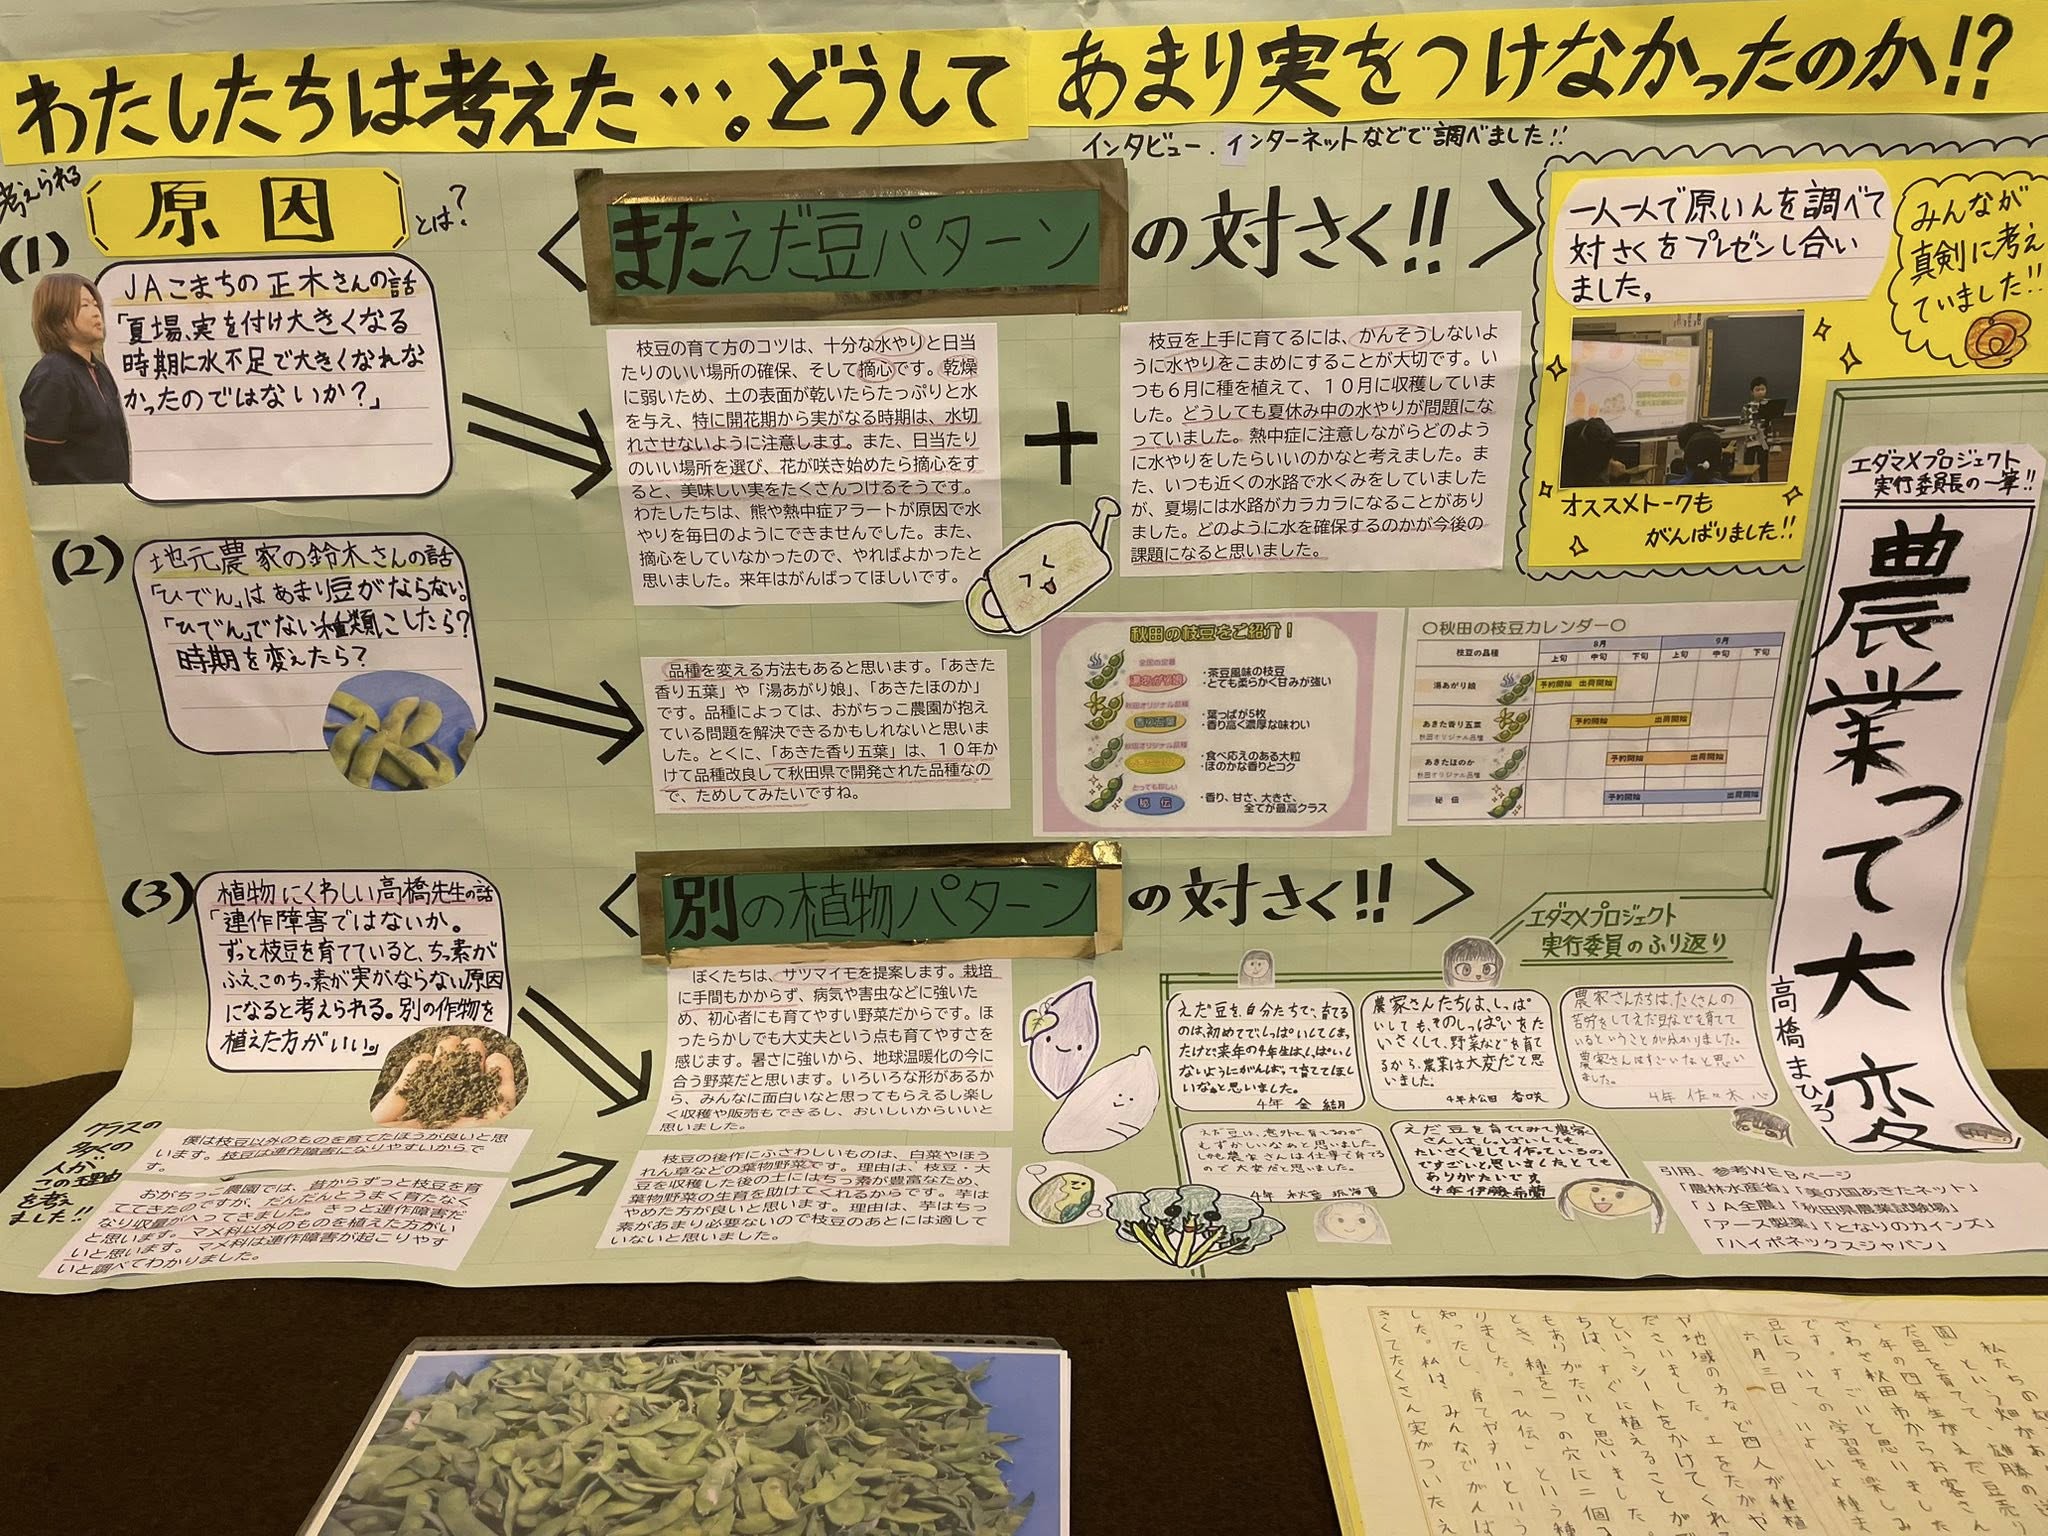 わたしたちは考えた…。どうして あまり実をつけなかったのか!?
インタビュー、インターネットなどで調べました!!
考えられる
原因
とは?
(1)
JAこまちの正木さんの話
「夏場、実を付け大きくなる
時期に水不足で大きくなれな
かったのではないか?」
(2)
地元農家の鈴木さんの話
「ひでん」はあまり豆がならない。
「ひでん」でない種類にしたら?
時期を変えたら?
(3)
植物にくわしい高橋先生の話
「連作障害ではないか。
ずっと枝豆を育てていると、ちっ素が
ふえ、このちっ素が実がならない原因
になると考えられる。別の作物を
植えた方がいい。」
クラスの
多くの
人が
この理由
を考え
ました!!
僕は枝豆以外のものを育てたほうが良いと思
います。枝豆は連作障害になりやすいからで
す。
おがちっこ農園では、昔からずっと枝豆を育
ててきたのですが、だんだんとうまく育たなく
なり収量がへってきました。きっと連作障害だ
と思います。マメ科以外のものを植えた方がい
いと思います。マメ科は連作障害が起こりやす
いと調べてわかりました。
<またえだ豆パターンの対さく!!>
枝豆の育て方のコツは、十分な水やりと日当
たりのいい場所の確保、そして摘心です。乾燥
に弱いため、土の表面が乾いたらたっぷりと水
を与え、特に開花期から実がなる時期は、水切
れさせないように注意します。また、日当たり
のいい場所を選び、花が咲き始めたら摘心をす
ると、美味しい実をたくさんつけるそうです。
わたしたちは、熊や熱中症アラートが原因で水
やりを毎日のようにできませんでした。また、
摘心をしていなかったので、やればよかったと
思いました。来年はがんばってほしいです。
+
枝豆を上手に育てるには、かんそうしないよ
うに水やりをこまめにすることが大切です。い
つも6月に種を植えて、10月に収穫していま
した。どうしても夏休み中の水やりが問題にな
っていました。熱中症に注意しながらどのよう
に水やりをしたらいいのかなと考えました。ま
た、いつも近くの水路で水くみをしていました
が、夏場には水路がカラカラになることがあり
ました。どのように水を確保するのかが今後の
課題になると思いました。
品種を変える方法もあると思います。「あきた
香り五葉」や「湯あがり娘」、「あきたほのか」
です。品種によっては、おがちっこ農園が抱え
ている問題を解決できるかもしれないと思いま
した。とくに、「あきた香り五葉」は、10年か
けて品種改良して秋田県で開発された品種なの
で、ためしてみたいですね。
秋田の枝豆をご紹介!
全国の定番
湯あがり娘
・茶豆風味の枝豆
・とても柔らかく甘みが強い
秋田オリジナル品種
香り五葉
・葉っぱが5枚
・香り高く濃厚な味わい
秋田オリジナル品種
・食べ応えのある大粒
・ほのかな香りとコク
とっても珍しい
秘伝
・香り、甘さ、大きさ、
全てが最高クラス
○秋田の枝豆カレンダー○
枝豆の品種
8月
9月
上旬 中旬 下旬 上旬 中旬 下旬
湯あがり娘
予約開始 出荷開始
あきた香り五葉
秋田オリジナル品種
予約開始 出荷開始
あきたほのか
秋田オリジナル品種
予約開始 出荷開始
秘伝
予約開始 出荷開始
<別の植物パターンの対さく!!>
ぼくたちは、サツマイモを提案します。栽培
に手間もかからず、病気や害虫などに強いた
め、初心者にも育てやすい野菜だからです。ほ
ったらかしでも大丈夫という点も育てやすさを
感じます。暑さに強いから、地球温暖化の今に
合う野菜だと思います。いろいろな形があるか
ら、みんなに面白いなと思ってもらえるし楽し
く収穫や販売もできるし、おいしいからいいと
思いました。
枝豆の後作にふさわしいものは、白菜やほう
れん草などの葉物野菜です。理由は、枝豆・大
豆を収穫した後の土にはちっ素が豊富なため、
葉物野菜の生育を助けてくれるからです。芋は
やめた方が良いと思います。理由は、芋はちっ
素があまり必要ないので枝豆のあとには適して
いないと思いました。
一人一人で原いんを調べて
対さくをプレゼンし合い
ました。
みんなが
真剣に考え
ていました!!
オススメトークも
がんばりました!!
エダマメプロジェクト
実行委員長の一筆!!
農業って大変
高橋まひろ
エダマメプロジェクト
実行委員のふり返り
えだ豆を自分たちで、育てる
のは、初めてで、しっぱいしてしまっ
たけど、来年の4年生は、しっぱいし
ないようにがんばって育ててほし
いなぁと思いました。
4年 金 結月
農家さんたちは、しっぱ
いしても、そのしっぱいをた
いさくして、野菜などを育て
るから、農業は大変だと思
いました。
4年 松田 杏咲
農家さんたちは、たくさんの
苦労をしてえだ豆などを育てて
いるということが分かりました。
農家さんはすごいなと思い
ました。
4年 佐々木 心
えだ豆は、意外と育てるのが
むずかしいなぁと思いました。
しかも農家さんは仕事で育てる
ので大変だと思いました。
4年 秋葉
えだ豆を育ててみて農家
さんは、しっぱいしても
たいさくをして作っているの
ですごいと思いました。とても
ありがたいです。
4年 伊藤希蘭
引用、参考WEBページ
「農林水産省」「美の国あきたネット」
「JA全農」「秋田県農業試験場」
「アース製薬」「となりのカインズ」
「ハイポネックスジャパン」